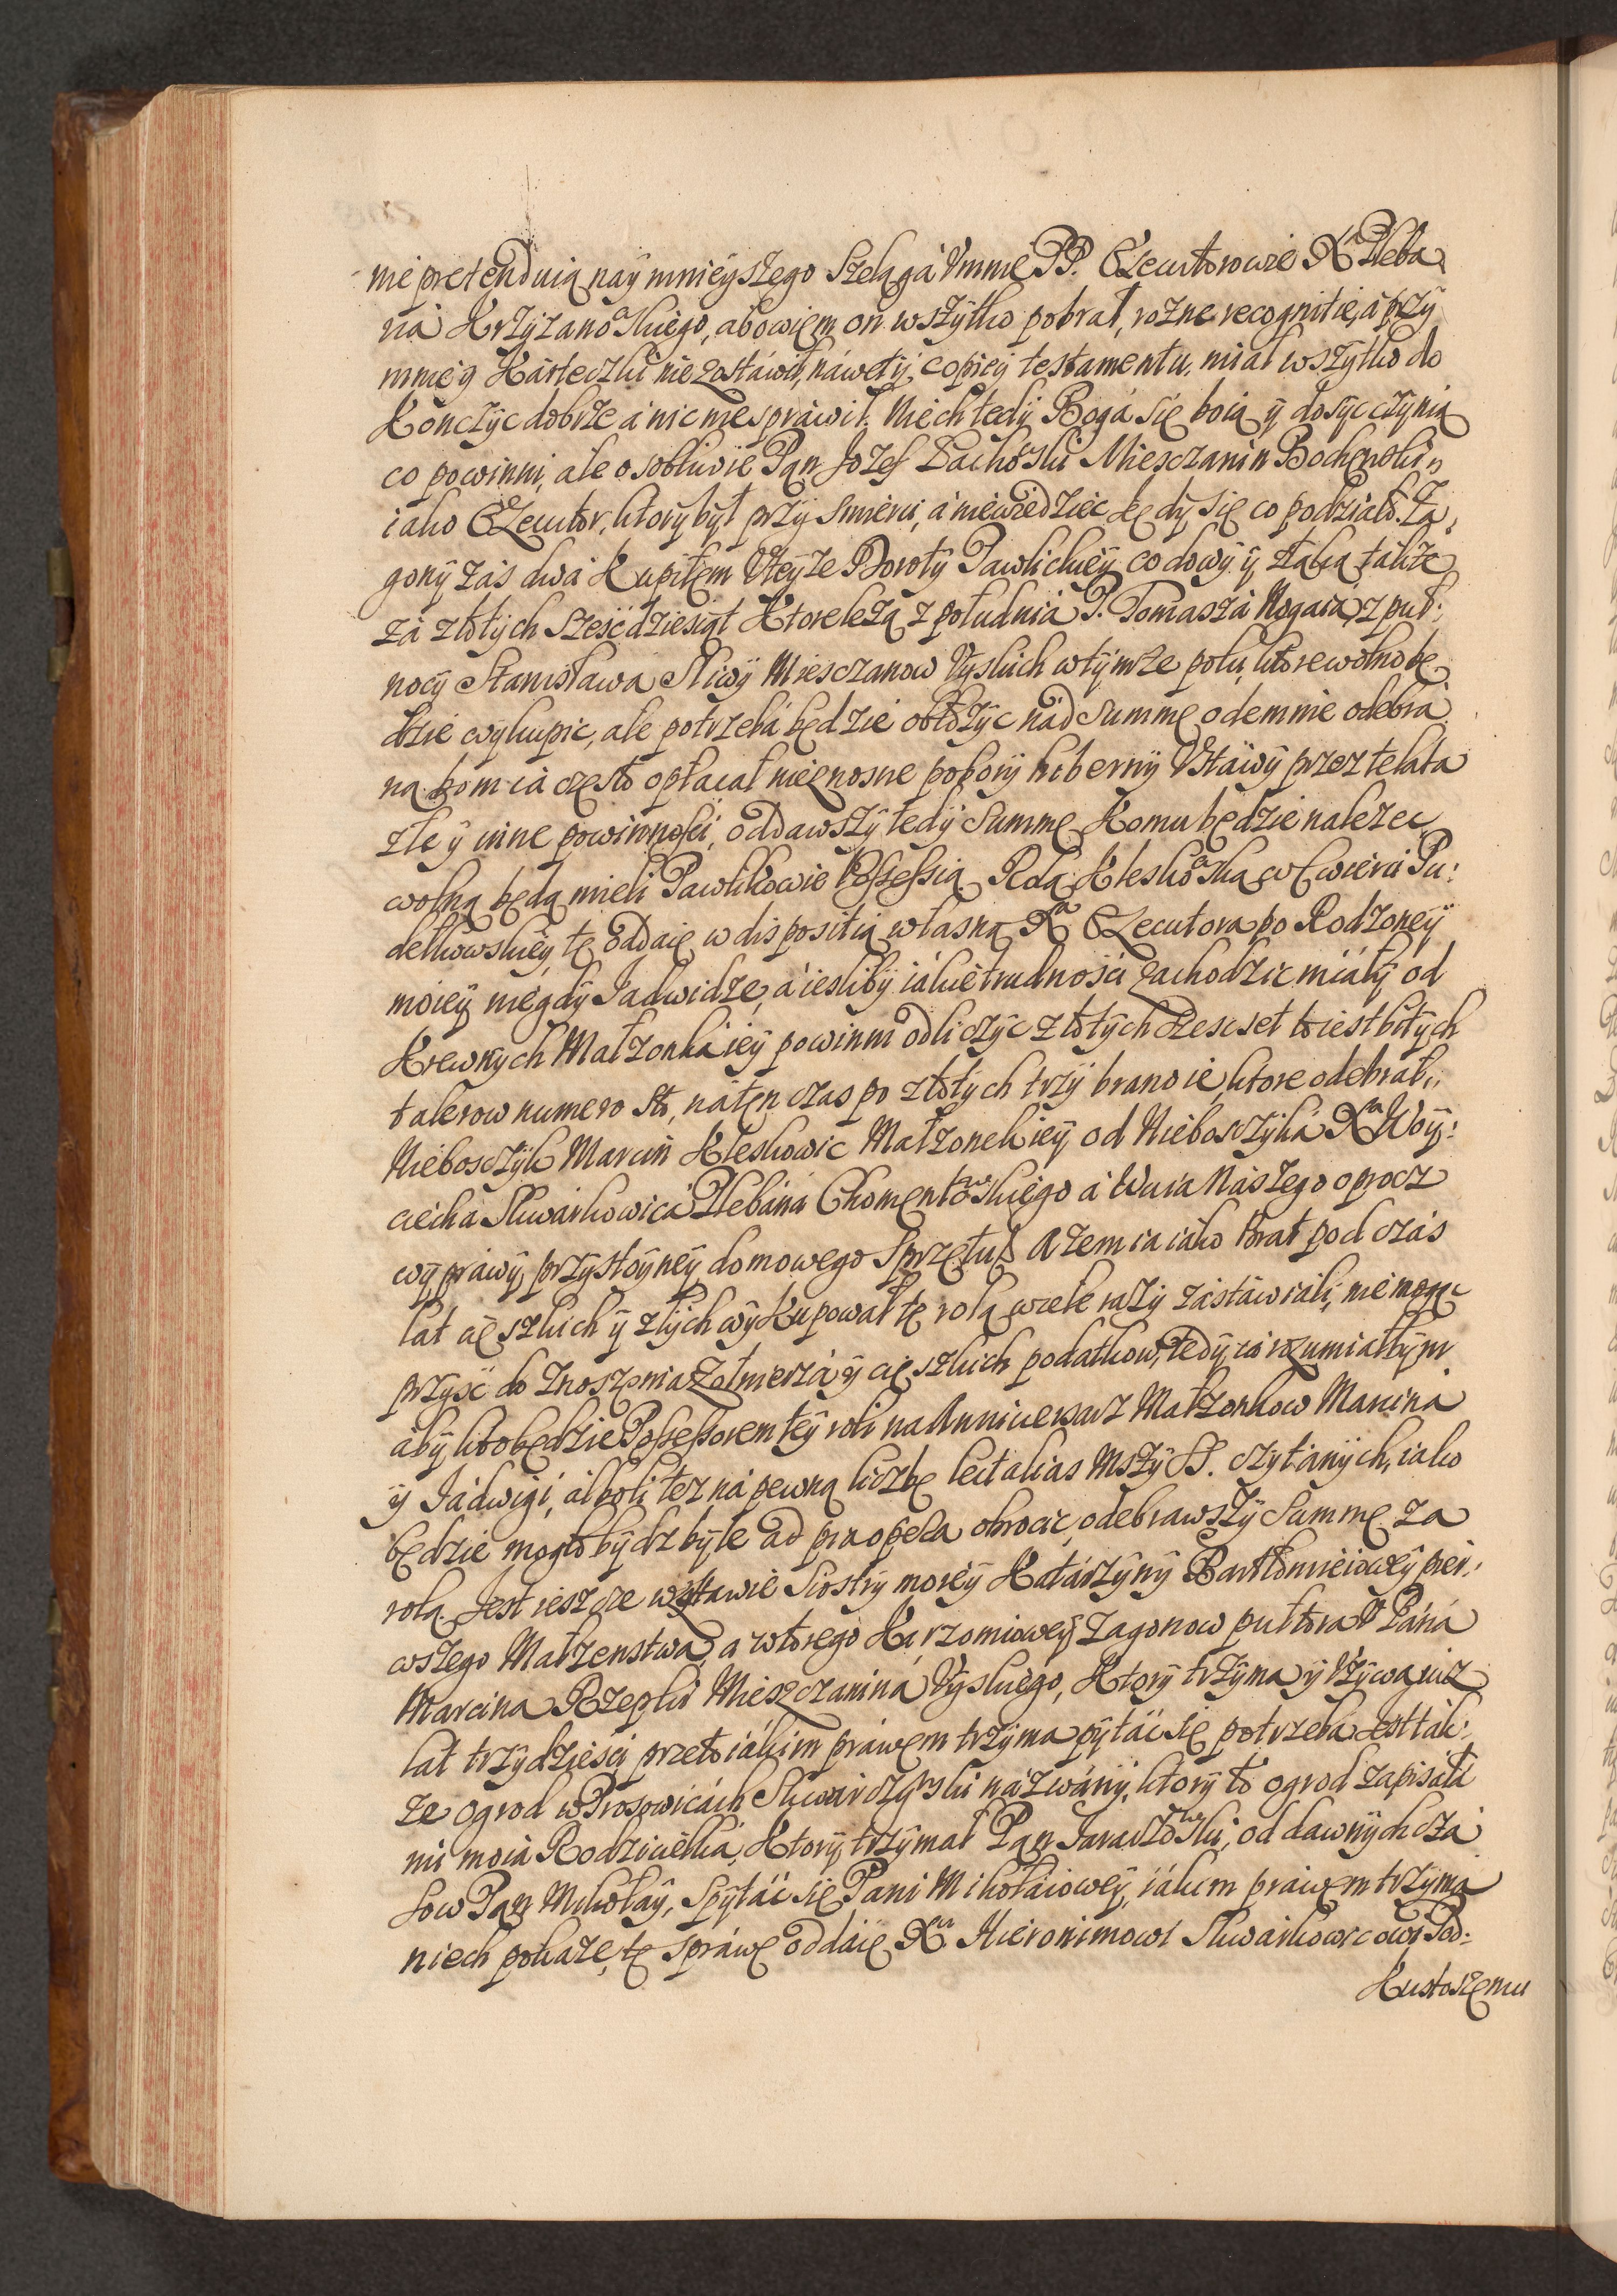 nie pretenduią naÿmnieÿszego Szelągá Vmnie PP. Exekutorowie X Pleba
ná Krzÿzanowskiego, abowiem on wszÿtko pobrał, rozne recognitie, á przÿ
mnieÿ Kárteczki nie zostáwił, náwet ÿ copieÿ testamentu, miał wszÿtko do
Konczÿc dobrze á nic nie spráwił. Niech tedÿ Bogá się boią ÿ dosÿc czÿnią
co powinni, ale osobliwie Pan Jozef Zachowski Miesczanin Bochenski
iako Exekutor, ktorÿ bÿł przÿ Smierci, á niewiedziec kędÿ się co podziało. Za,
gonÿ zás dwá Kupiłem Vteÿze Dorotÿ Pawlickieÿ co dowÿ ÿ także
zá złotÿch Szesćdziesiąt Ktore leżą z południá P. Tomaszá Nogaia, z puł:
nocÿ Stanisława Sliwÿ Miesczanow Vÿskich wtÿmże polu, ktore wolno bę
dzie wÿkupic, ale potrzebá będzie obłożÿc nád Summę odemnie odebrá
ną bom ia często opłacał nieznosne poborÿ hibernÿ Vstáwÿ przez te lata
złe ÿ inne powinnosci, oddawszÿ tedÿ Summę Komu będzie nalezec
wolną będą mieli Pawlikowie Possessią. Rolą Kleskowską w Cwierci Pu:
detkowskieÿ, tę oddaię w dispositią własną X Exekutora po Rodzoneÿ
moieÿ niegdÿ Jadwidze, á iesliby iákie trudnosci zachodzic miáłÿ od
Krewnÿch Małzonká ieÿ powinni odliczÿc złotÿch szescset to iest bitÿch
talerow numero sto, náten czas po złotÿch trzÿ branoie, ktore odebrał
Nieboszczÿk Marcin Kleskowic Małzonek ieÿ od Nieboszczÿká X Woÿ:
ciechá Skwarkowicá Plebáná Chomentowskiego á Wuiá Nászego oprocz
wÿpráwÿ, przÿstoÿneÿ domowego Sprzętu. A zem ia iako brat pod czás
lat cięszkich ÿ złÿch wÿkupował tę rolą wiele razÿ zástáwiáli, nie mogąc
przÿsć do znoszenia Zołnierzá ÿ cięszkich podatkow, tedÿ ia rozumiałbÿm
ábÿ kto będzie Possessorem teÿ roli na Anniuersarz Małzonkow Marciná
ÿ Jádwigi, álboli tez ná pewną liczbę lectalias MszÿSS. czÿtánÿch, iako
będzie mogło bÿdz bÿle ad pia opera obrocic, odebrawszÿ Summę za
rolą. Jest ieszcze w zastawie Siostrÿ moieÿ Katárzÿnÿ Bartłomieioweÿ pier:
wszego Małzenstwa, a wtorego Karzomioweÿ zagonow pułtora V Páná
Marcina Rzepki Mieszczaniná Vÿskiego, Ktorÿ trzÿma ÿ Vzÿwa iuz
lat trzÿdziesci przeto iákim práwem trzÿma pÿtáć się potrzeba. Jest ták:
ze ogrod w Prosowicách Skwárczÿnski názwánÿ, ktorÿ to ogrod zapisáłá
mi moiá Rodzicielká, Ktorÿ trzÿmał Pan Jararzowski, od dawnÿch czá
sow Pan Mikołaÿ, Spÿtáć się Pani Mikołáioweÿ, iákim práwem trzÿma
niech pokaze, tę spráwę oddáię X Hieronimowi Skwárkowicowi Pod:
Kustoszemu